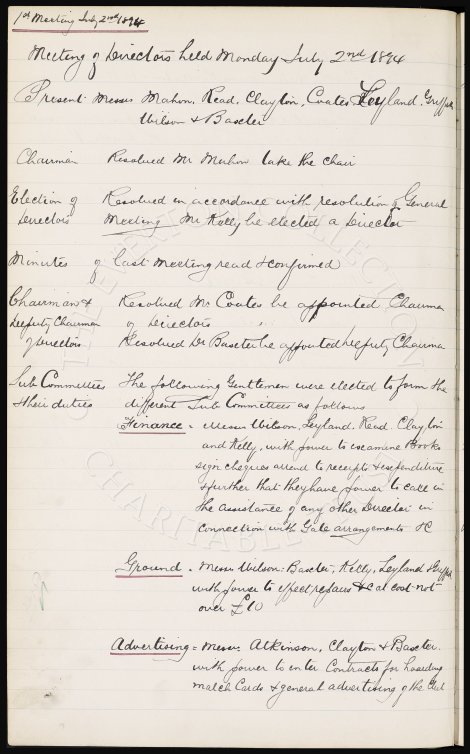 1st Meeting July 2nd 1894
Meeting of Directors held Monday July 2nd 1894
Present Messrs Mahon, Read, Clayton, Coates, Leyland, Griffiths
Wilson & Baxter
Chairman Resolved Mr Mahon take the chair
Election of Resolved in accordance with resolution of General
Directors Meeting Mr Kelly be elected a Director
Minutes of last meeting read & confirmed
Chairman & Resolved Mr Coates be appointed Chairman
Deputy Chairman of Directors
of Directors Resolved Dr Baxter be appointed Deputy Chairman
Sub Committees The following Gentlemen were elected to form the
& their duties different Sub Committees as follows
Finance = Messrs Wilson, Leyland, Read, Clayton
and Kelly, with power to examine Books
sign cheques attend to receipts & expenditure
& further that they have power to call in
the assistance of any other Director in
connection with Gate arrangements &c
Ground = Messrs Wilson, Baxter, Kelly, Leyland & Griffiths
with power to effect repairs &c at cost not
over £10
Advertising = Messrs Atkinson, Clayton & Baxter
with power to enter Contracts for hoarding
match Cards & general advertising of the Club
THE EVERTON COLLECTION
CHARITABLE